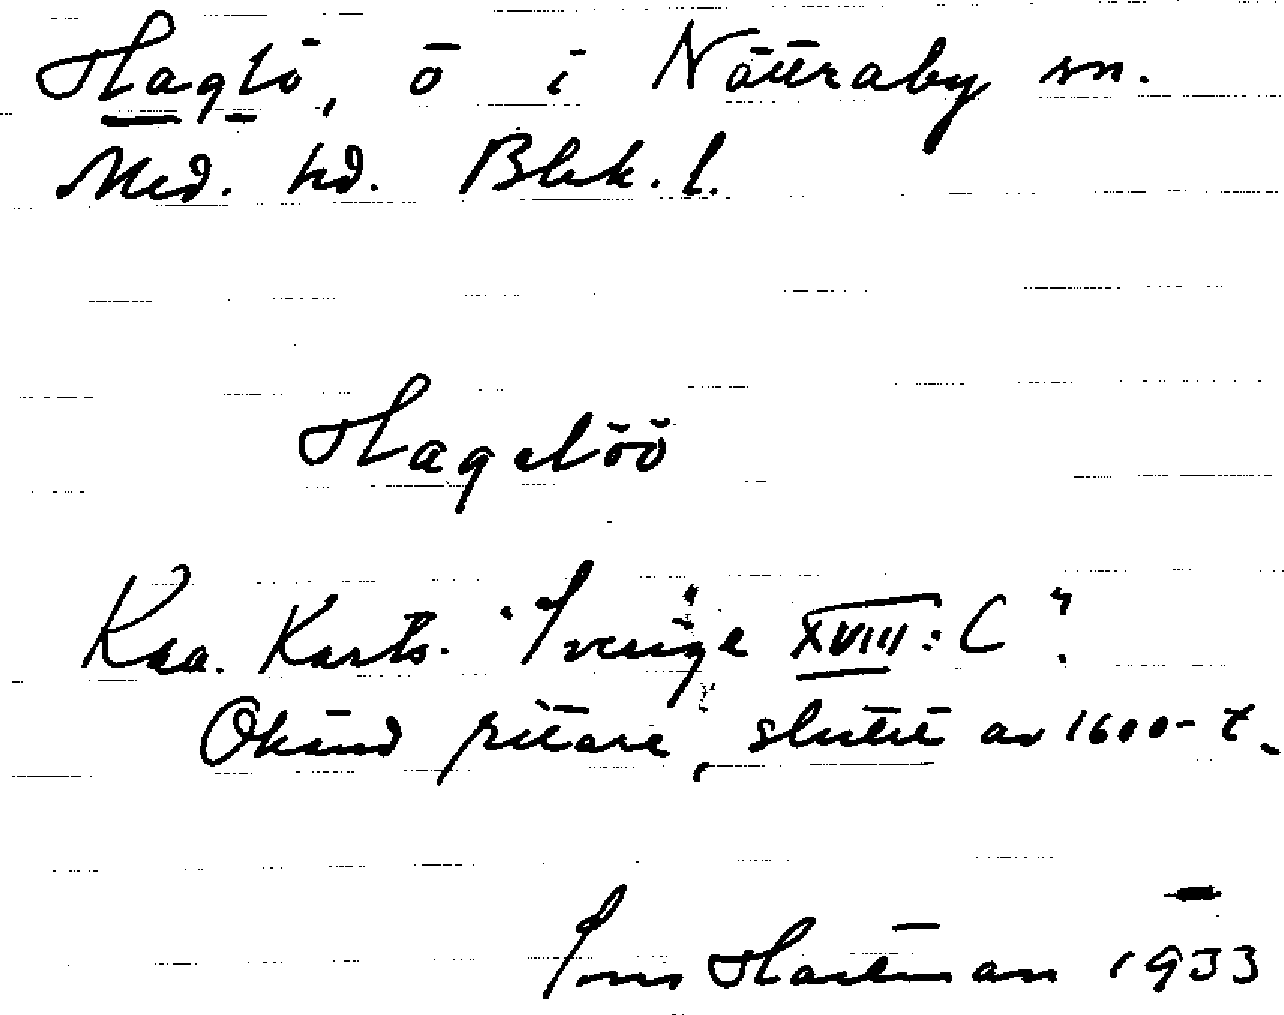 Haglö, ö i Nättraby sn.
Med. hd. Blek. l.
Hagelöö
Kra. Karts. "Sverige XVIII: C".
Okänd ritare, slutet av 1600-t.
Sven Hartman 1933